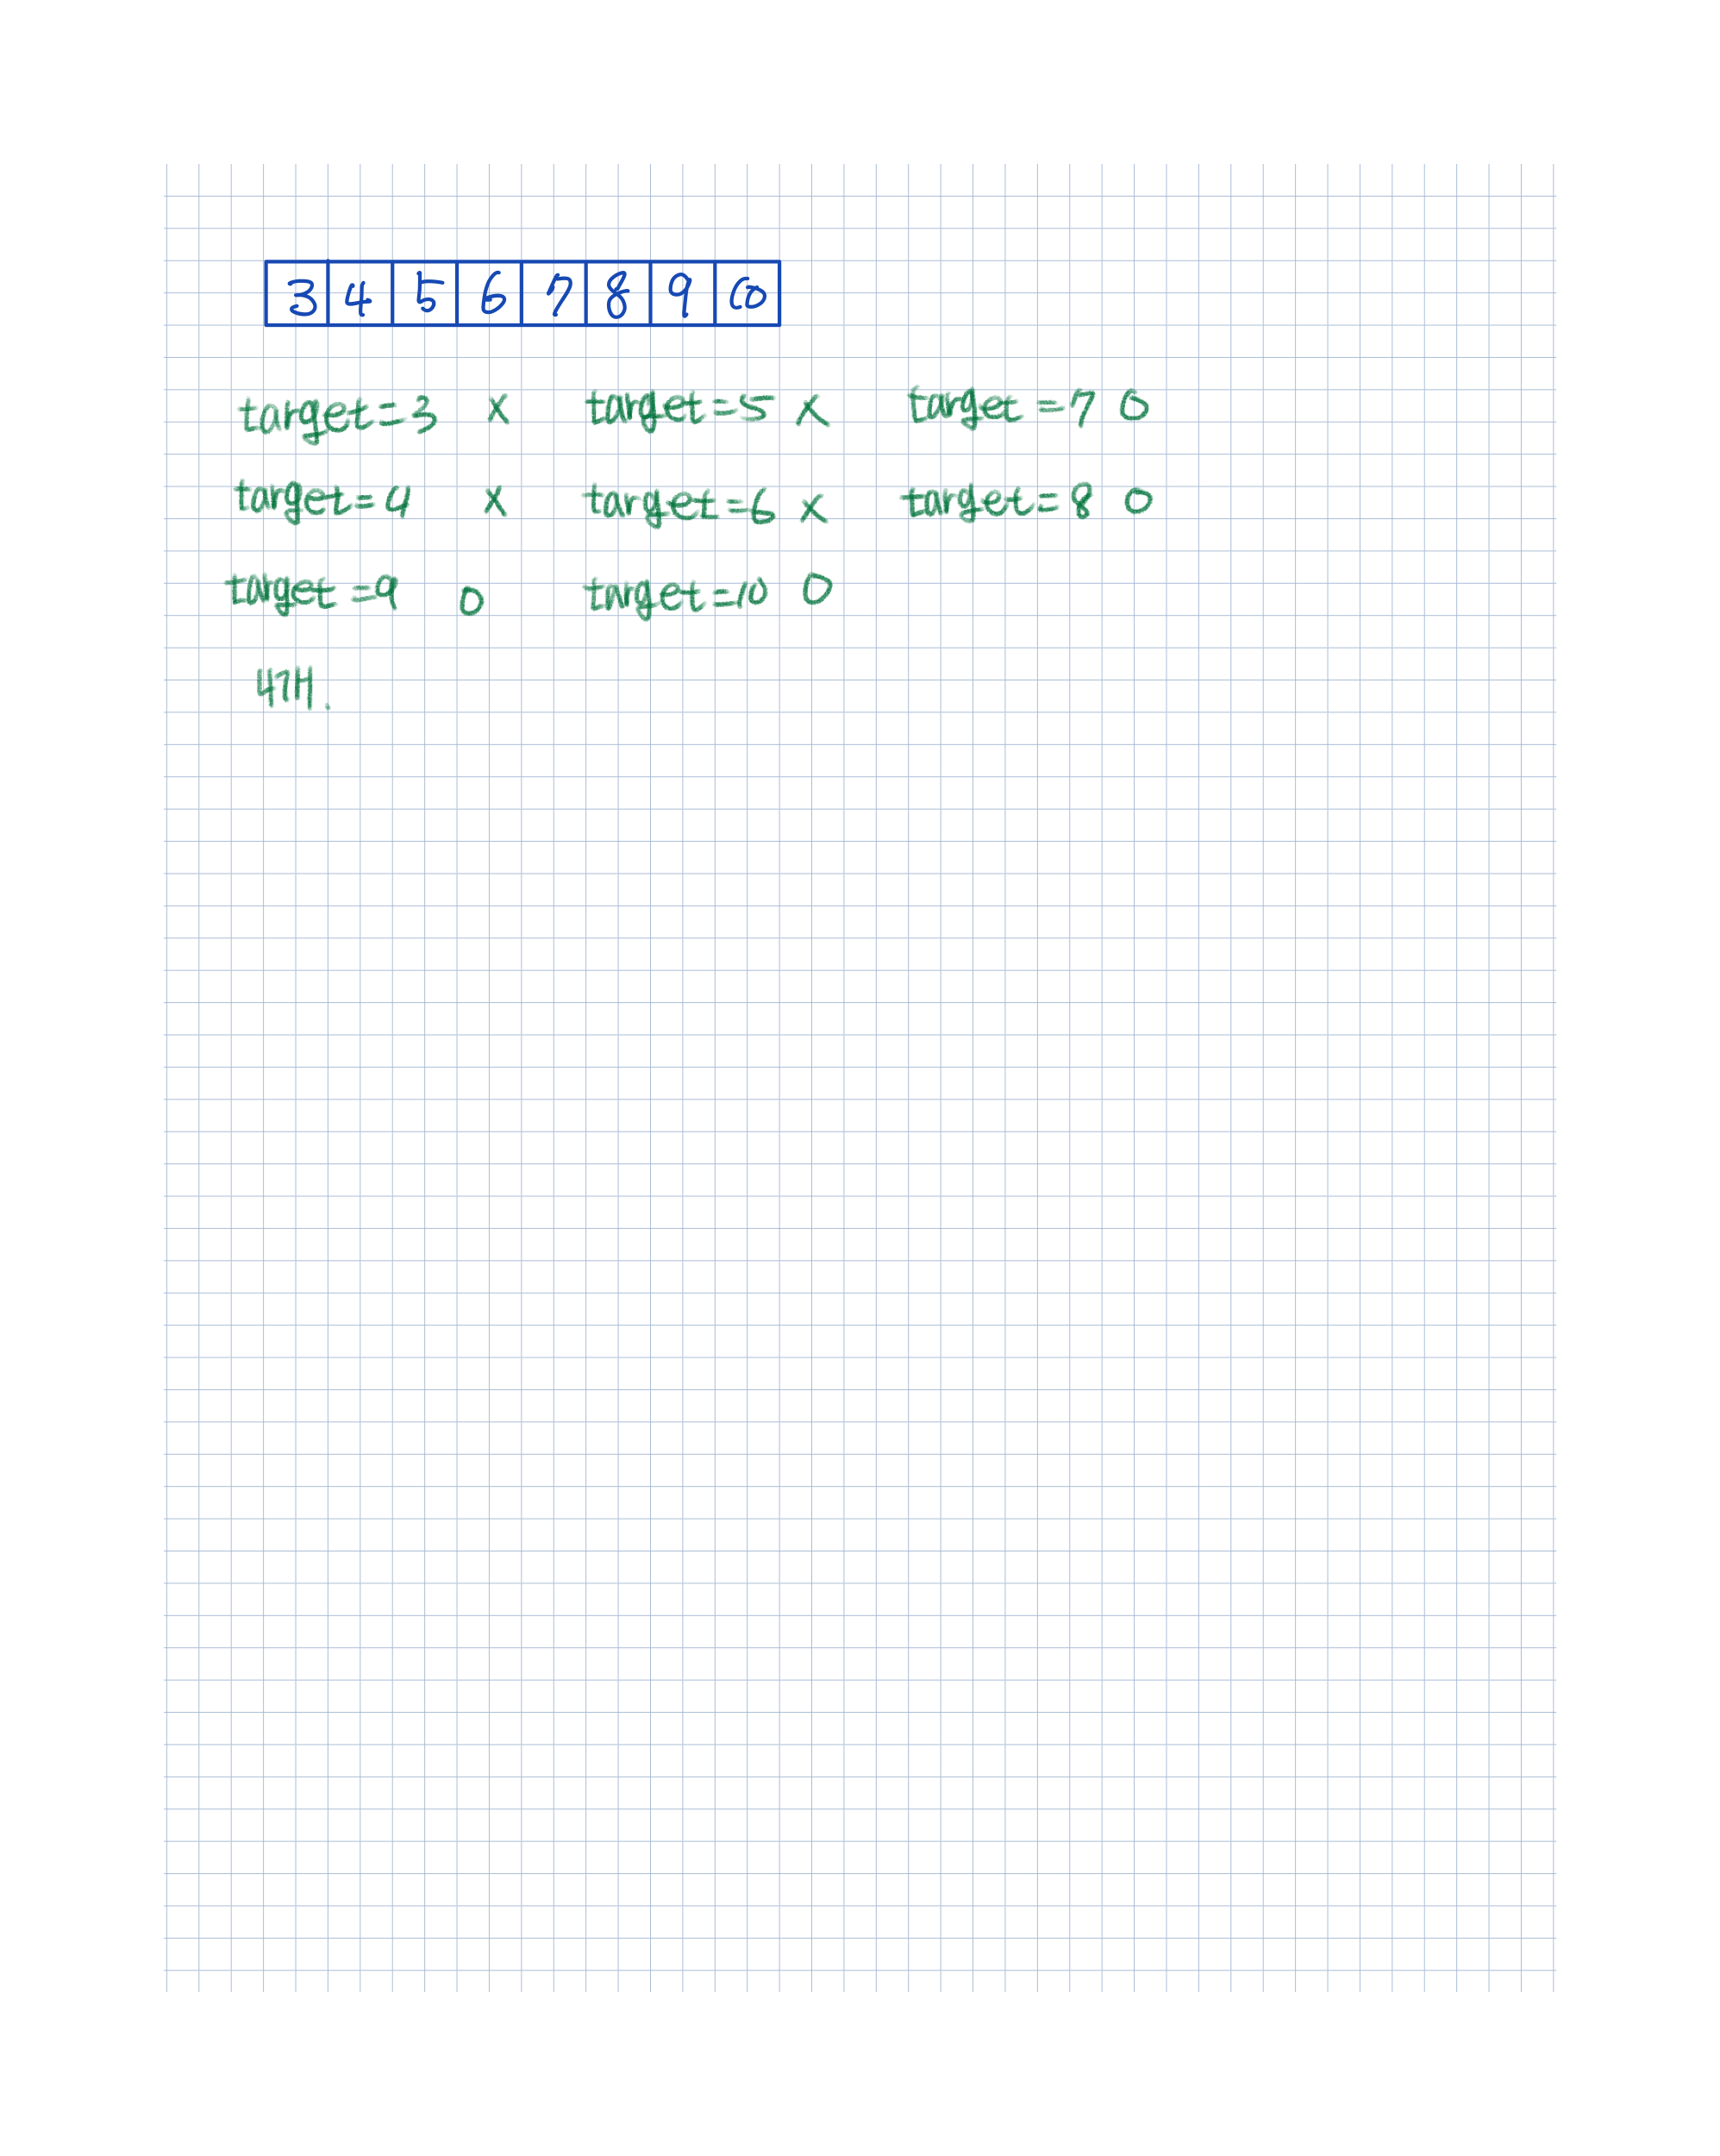 3 4 5 6 7 8 9 10
target=3 x target=5 x target=7 0
target=4 x target=6 x target=8 0
target=9 0 target=10 0
4개.